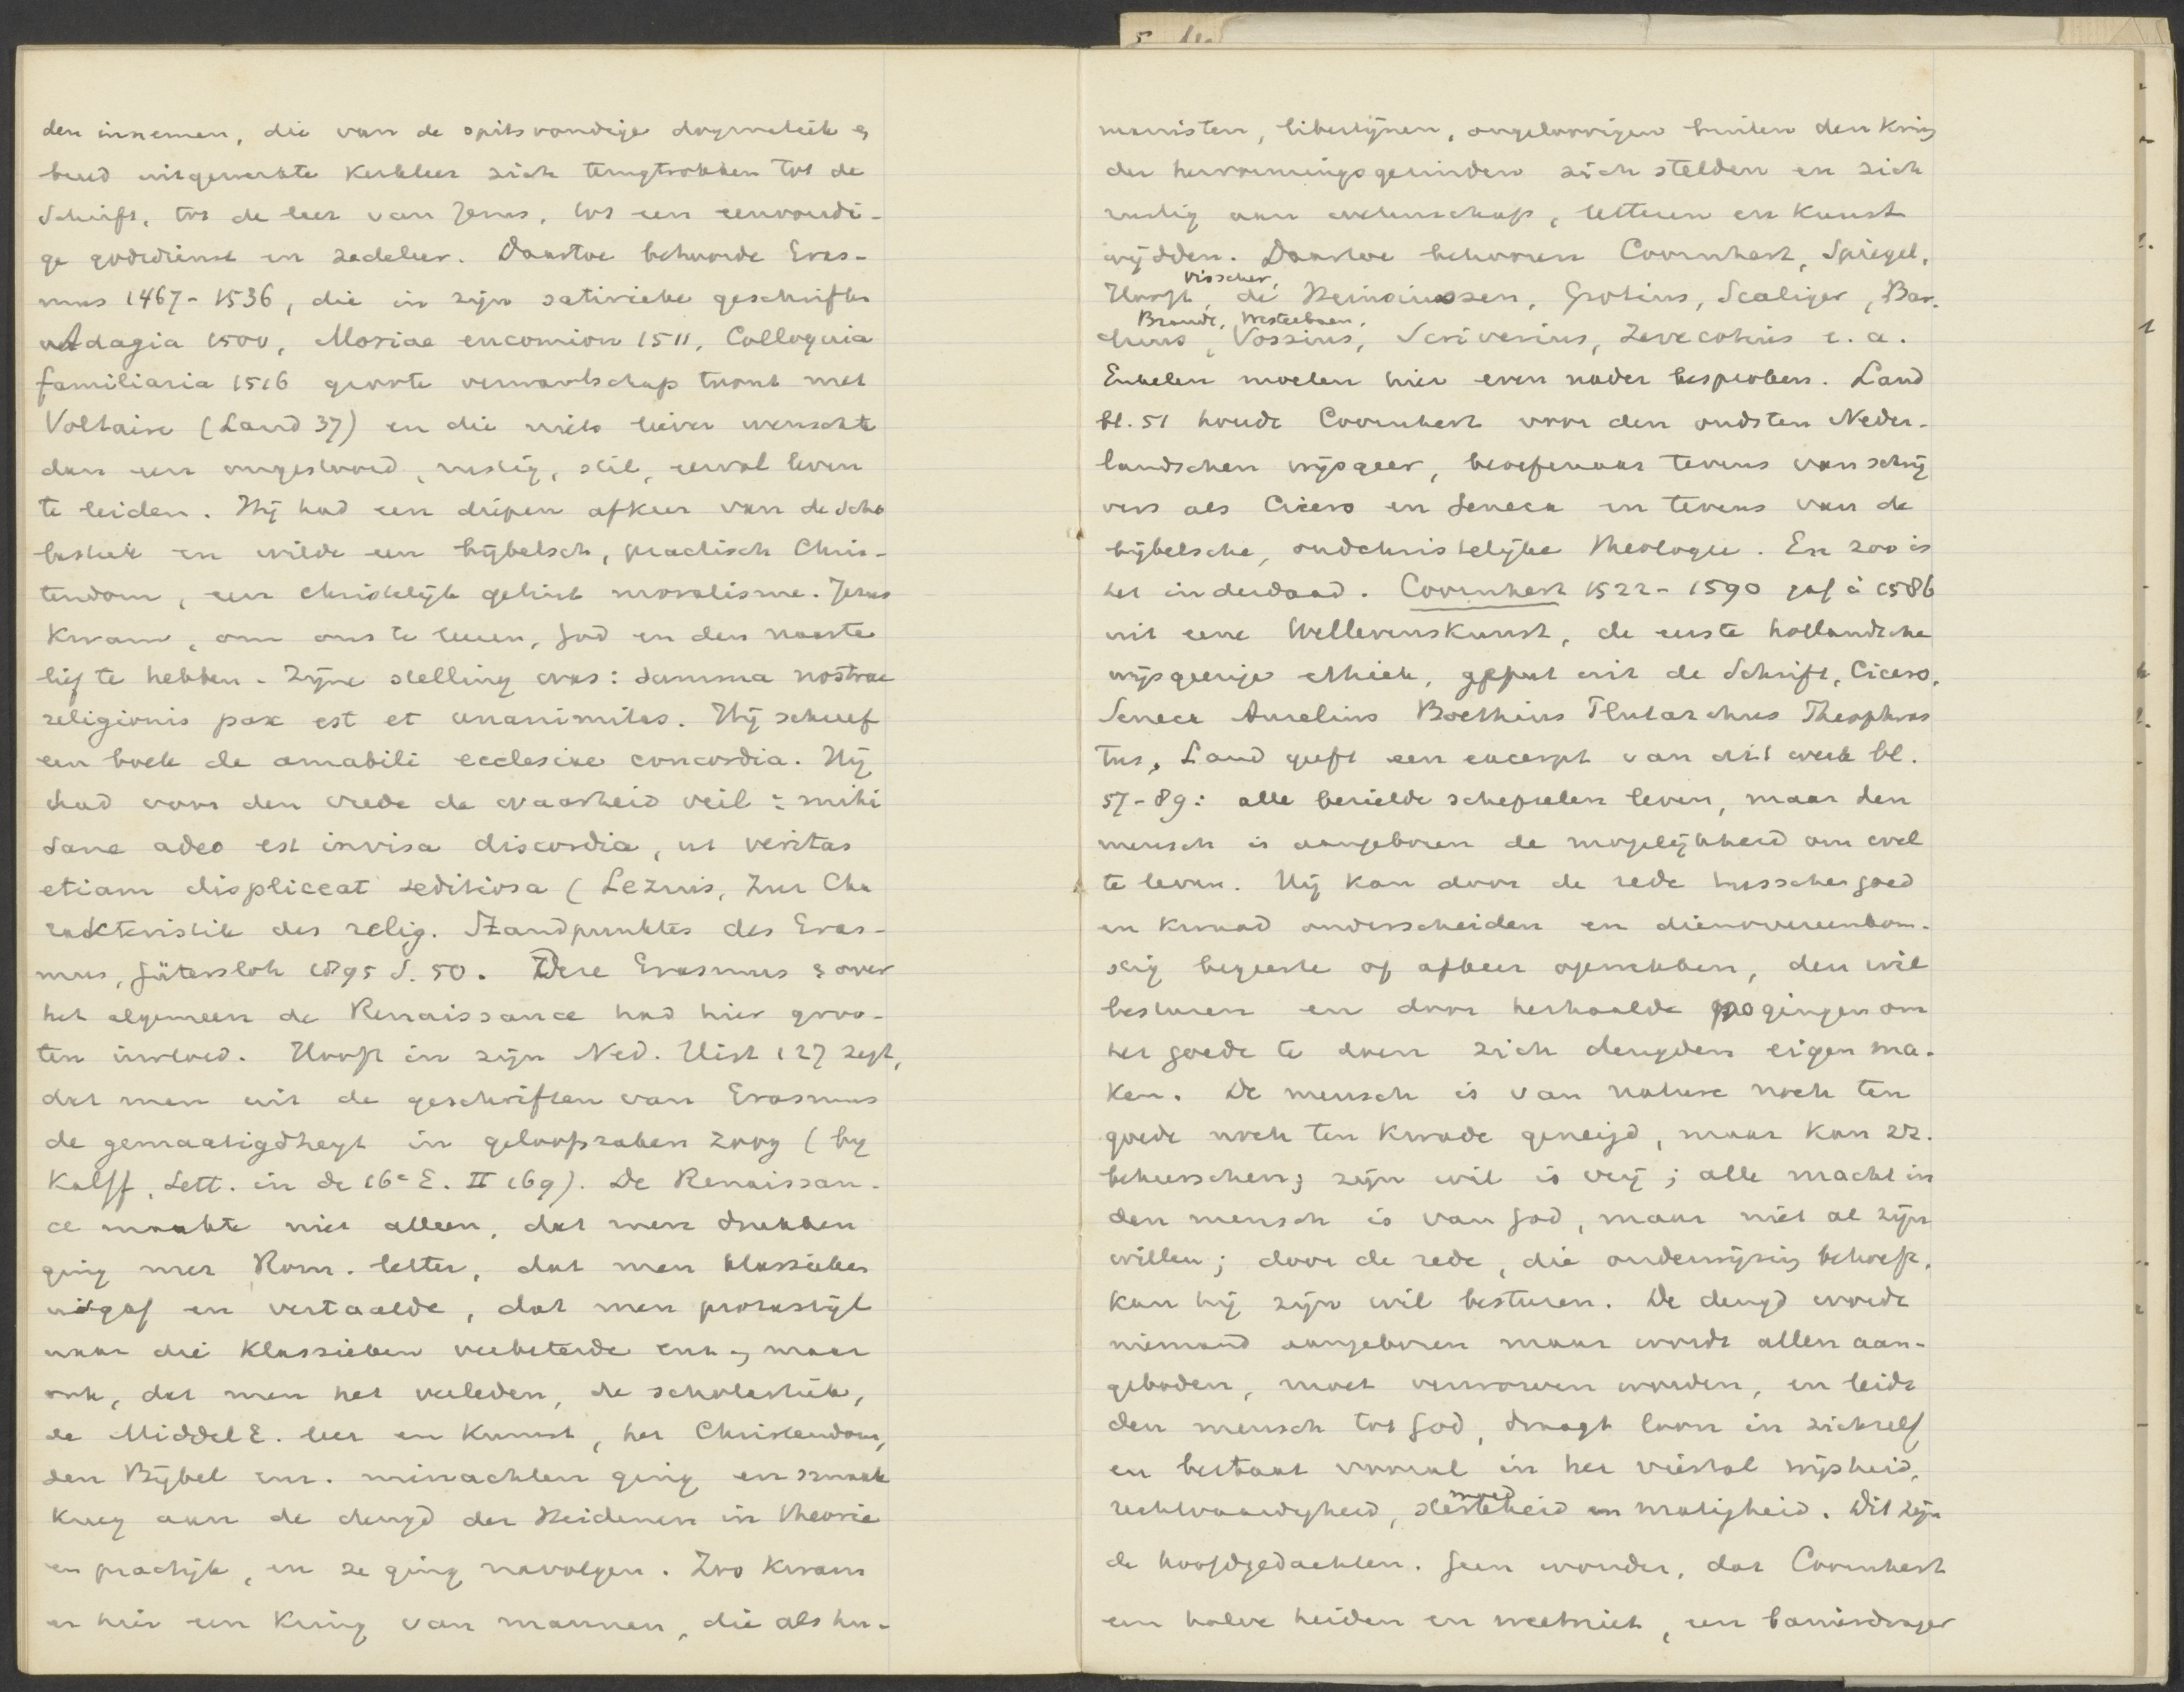 den innemen, die van de spitsvondige dogmatiek &
breed uitgewerkte kerkleer zich terugtrokken tot de
Schrift, tot de leer van Jezus, tot een eenvoudi-
ge godsdienst en zedeleer. Daartoe behoorde Eras-
mus 1467-1536, die in zijn satirieke geschriften
Adagia 1500, Moriae encomion 1511, Colloquia
familiaria 1516 groote verwantschap toont met
Voltaire (Land 37) en die niets liever wenschte
dan een ongestoord, rustig, stil, eervol leven
te leiden. Hij had een diepen afkeer van de scho
lastiek en wilde een bijbelsch, practisch Chris-
tendom, een christelijk getint moralisme. Jezus
kwam, om ons te leeren, God en den naaste
lief te hebben. Zijne stelling was: summa nostrae
religionis pax est et unanimitas. Hij schreef
een boek de amabili ecclesiae concordia. Hij
had voor den vrede de waarheid veil: mihi
sane adeo est invisa discordia, ut veritas
etiam displiceat seditiosa (Lezius, Zur Cha
rakteristik des relig. Standpunktes des Eras-
mus, Gütersloh 1895 S. 50. Deze Erasmus & over
het algemeen de Renaissance had hier groo-
ten invloed. Hooft in zijn Ned. Hist 127 zegt,
dat men uit de geschriften van Erasmus
de gemaatigdheyt in geloofszaken zoog (by
Kalff, Lett. in de 16e E. II 169). De Renaissan-
ce maakte niet alleen, dat men drukken
ging met Rom. letter, dat men klassieken
uitgaf en vertaalde, dat men prozastijl
naar die klassieken verbeterde enz., maar
ook, dat men het verleden, de scholastiek,
de Middel E. leer en kunst, het Christendom,
den Bijbel enz. minachten ging en smaak
kreeg aan de deugd der Heidenen in theorie
en practijk, en ze ging navolgen. Zoo kwam
er hier een kring van mannen, die als hu-
manisten, libertijnen, ongeloovigen buiten den kring
der hervormingsgezinden zich stelden en zich
rustig aan wetenschap, letteren en kunst
wijdden. Daartoe behooren Coornhert, Spiegel,
Visscher,
Hooft, de Heinsiussen, Grotius, Scaliger, Bar-
Brandt, Westerbaen,
laeus, Vossius, Scriverius, Zevecotius e. a.
Enkelen moeten hier even nader besproken. Land
bl. 51 houdt Coornhert voor den oudsten Neder-
landschen wijsgeer, beoefenaar tevens van schrij
vers als Cicero en Seneca en tevens van de
bijbelsche, oudchristelijke theologie. En zoo is
het inderdaad. Coornhert 1522-1590 gaf à 1586
uit eene Wellevenskunst, de eerste hollandsche
wijsgeerige ethiek, geput uit de Schrift, Cicero,
Seneca Aurelius Boethius Plutarchus Theophras
tus. Land geeft een excerpt van dit werk bl.
57-89: alle bezielde schepselen leven, maar den
mensch is aangeboren de mogelijkheid om wel
te leven. Hij kan door de rede tusschen goed
en kwaad onderscheiden en dienovereenkom-
stig begeerte of afkeer opwekken, den wil
besturen en door herhaalde pogingen om
het goede te doen zich deugden eigen ma-
ken. De mensch is van nature noch ten
goede noch ten kwade geneigd, maar kan zz.
beheerschen; zijn wil is vrij; alle macht in
den mensch is van God, maar niet al zijn
willen; door de rede, die onderwijzing behoeft,
kan hij zijn wil besturen. De deugd wordt
niemand aangeboren maar wordt allen aan-
geboden, moet verworven worden, en leidt
den mensch tot God, draagt loon in zichzelf
en bestaat vooral in het viertal wijsheid,
moed
rechtvaardigheid, sterkheid en matigheid. Dit zijn
de hoofdgedachten. Geen wonder, dat Coornhert
een halve heiden en weetniet, een banierdrager